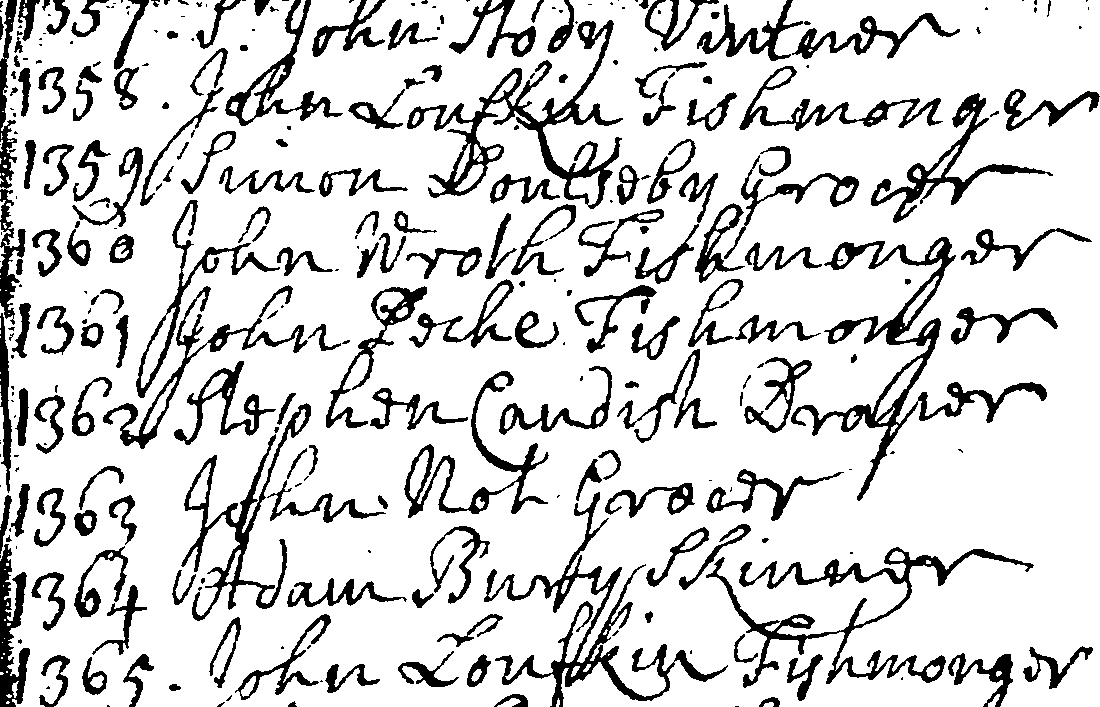 1357. S. John Stody Vintner
1358. John Loufkin Fishmonger
1359 Simon Doulseby Grocer
1360 John Wroth Fishmonger
1361 John Peche Fishmonger
1362 Stephen Candish Draper
1363 John Not Grocer
1364 Adam Burty Skinner
1365. John Loufkin Fishmonger